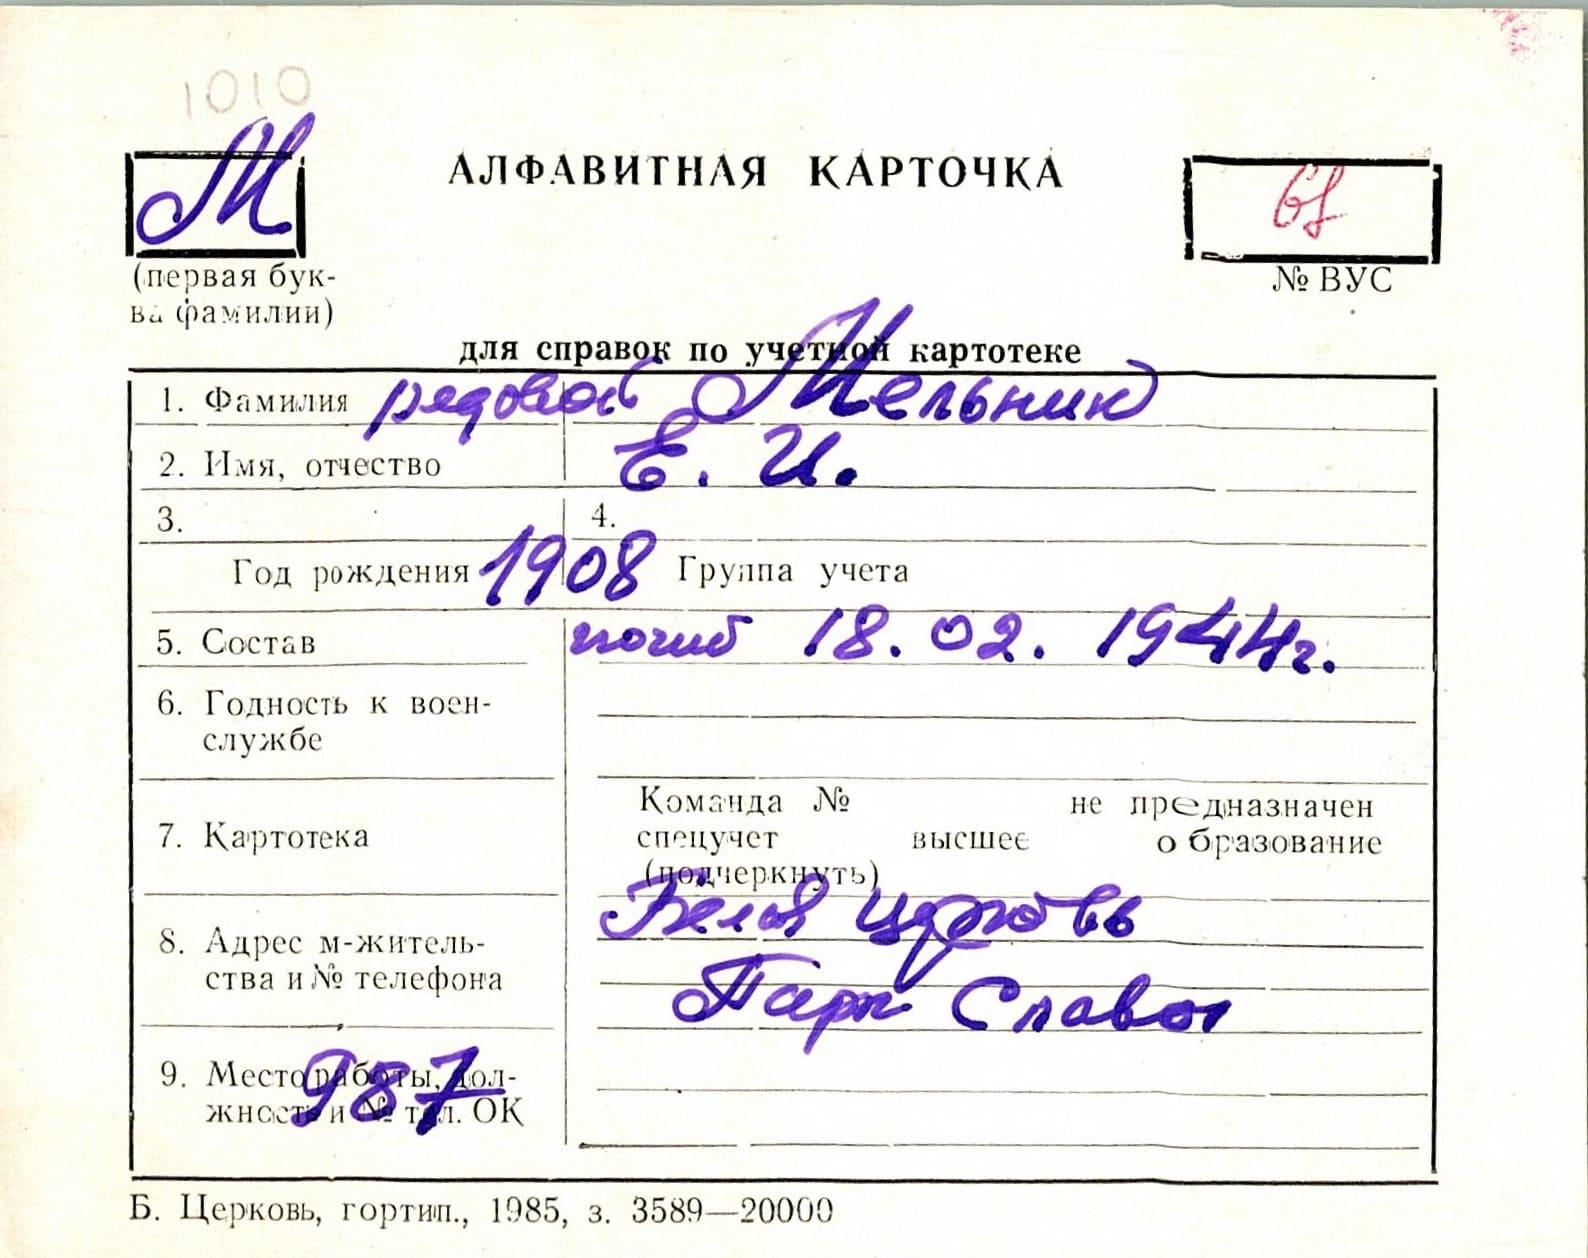 1010
М
АЛФАВИТНАЯ КАРТОЧКА
(первая бук-
ва фамилии)
№ ВУС
для справок по учетной картотеке
1. Фамилия рядовой Мельник
2. Имя, отчество Е. И.
3. 4.
Год рождения 1908 Группа учета
5. Состав погиб 18.02.1944г.
6. Годность к воен-
службе
Команда № не предназначен
7. Картотека спецучет высшее образование
(подчеркнуть)
Белая Церковь
8. Адрес м-житель-
ства и № телефона
Парк Славы
9. Место работы, дол-
жность и № тел. ОК
987
Б. Церковь, гортип., 1985, з. 3589—20000